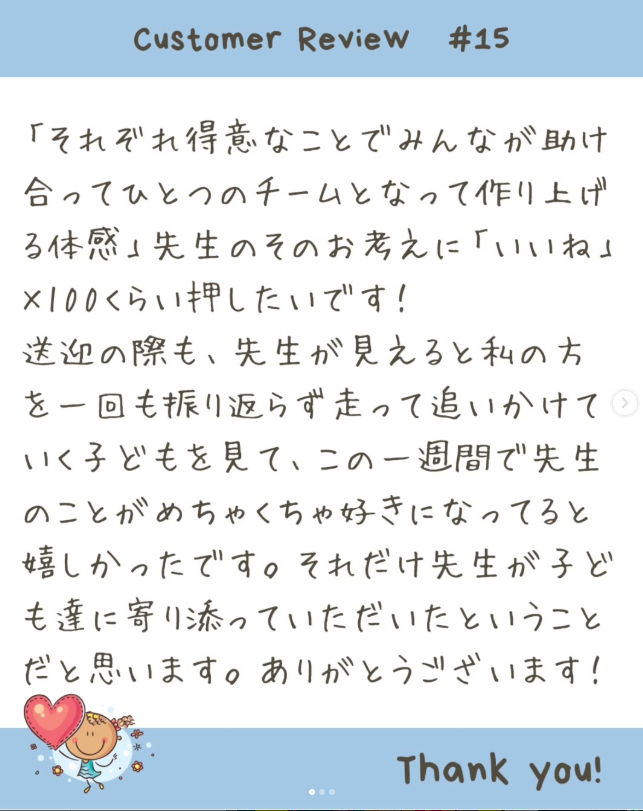 Customer Review #15
「それぞれ得意なことでみんなが助け
合ってひとつのチームとなって作り上げ
る体感」先生のそのお考えに「いいね」
×100くらい押したいです！
送迎の際も、先生が見えると私の方
を一回も振り返らず走って追いかけて
いく子どもを見て、この一週間で先生
のことがめちゃくちゃ好きになってると
嬉しかったです。それだけ先生が子ど
も達に寄り添っていただいたということ
だと思います。ありがとうございます！
Thank you!